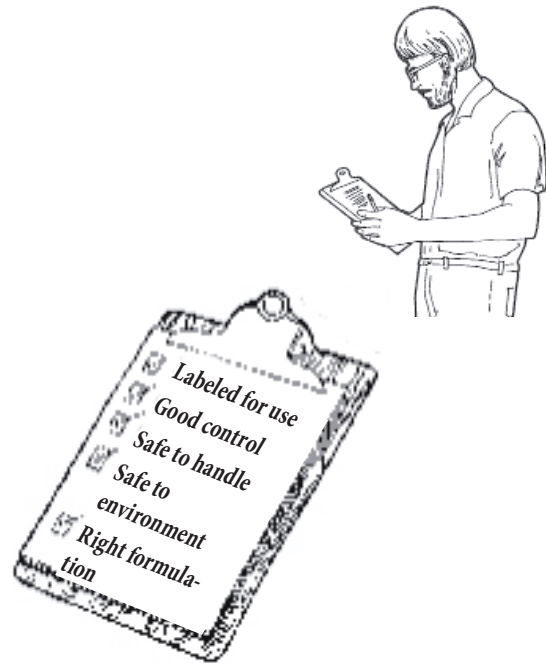 Labeled for use
Good control
Safe to handle
Safe to
environment
Right formula-
tion